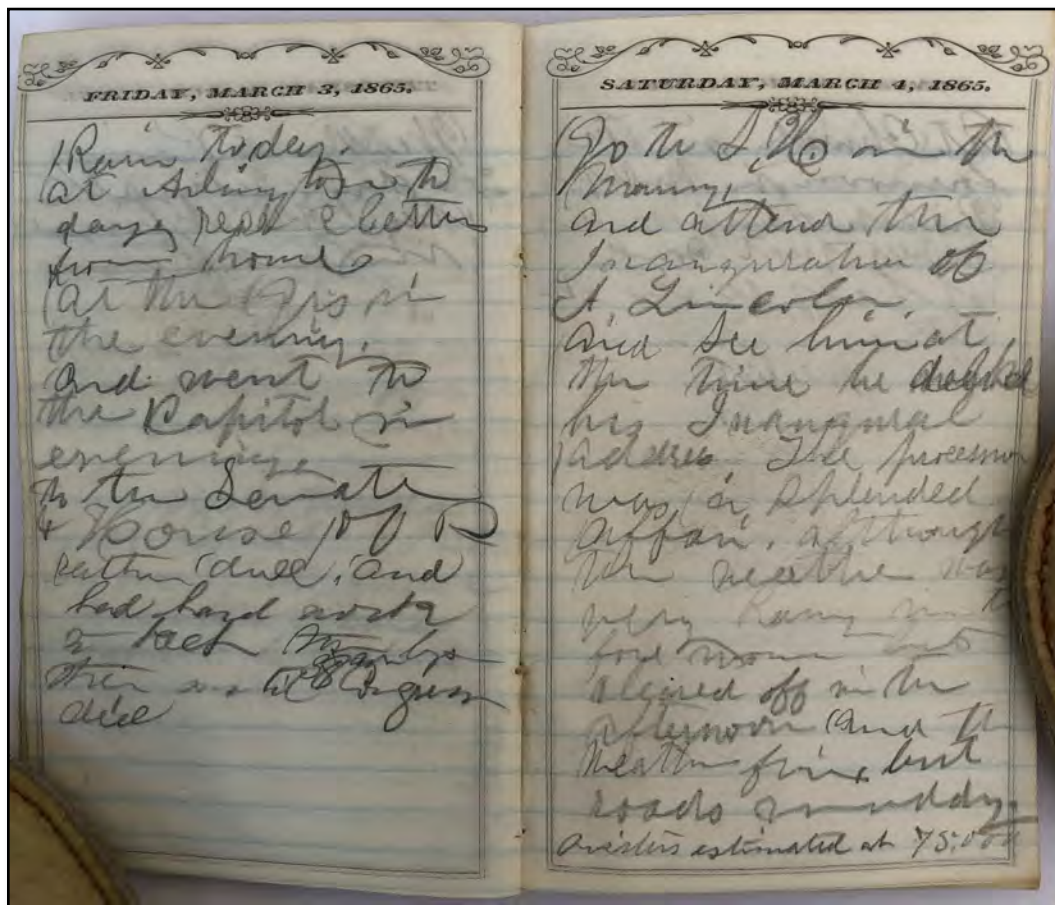 FRIDAY, MARCH 3, 1865.
Rain today.
at Arlington to
day, recd 2 letters
from home
at the in
the evening.
and went to
the Capitol in
evening
to the Senate
& House of R
rather dull, and
had hard work
to keep
their until Congress
died
SATURDAY, MARCH 4, 1865.
Go to S, H, in the
morning,
and attend the
Inauguration of
A. Lincoln.
and see him at
the time he
his Inaugural
Address. The procession
was a splended
affair, although
the weather was
very Rainy in the
fore noon but
cleared off in the
afternoon and the
Weather fine, but
roads muddy.
visitors estimated at 75.000